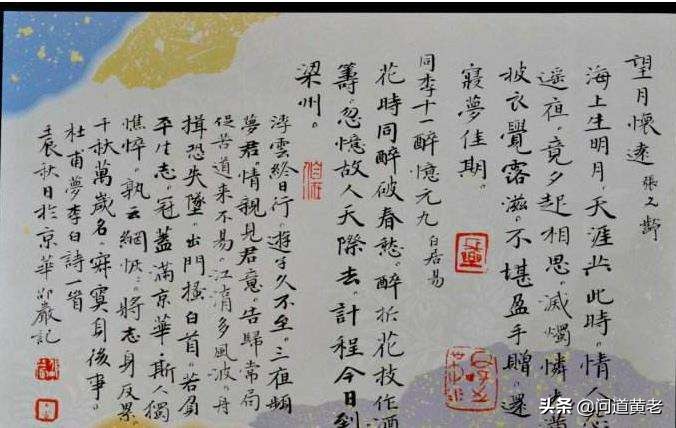 望月懷遠 張九齡
海上生明月。天涯共此時。情人怨
遥夜。竟夕起相思。滅燭憐光滿
披衣覺露滋。不堪盈手贈。還
寢夢佳期。
同李十一醉憶元九 白居易
花時同醉破春愁。醉折花枝作酒
籌。忽憶故人天際去。計程今日到
梁州。
浮雲終日行。遊子久不至。三夜頻
夢君。情親見君意。告歸常局
促苦道来不易。江湖多風波。舟
楫恐失墜。出門搔白首。若負
平生志。冠蓋滿京華。斯人獨
憔悴。孰云網恢。將老身反累。
千秋萬歲名。寂寞身後事。
杜甫夢李白詩一首
壬辰秋日於京華 嚴記
头条 @问道黄老